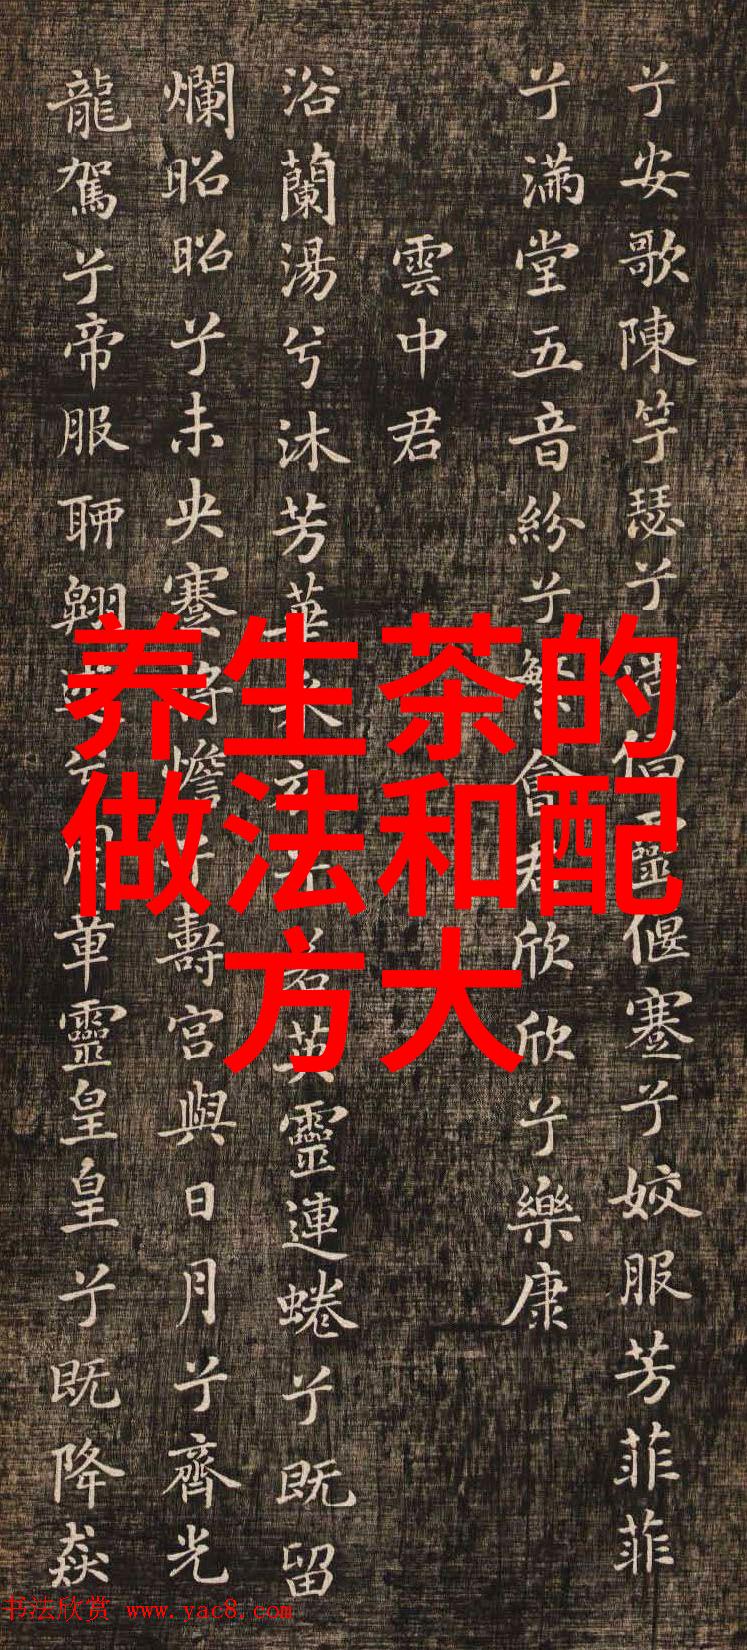 兮安歌陳竽瑟兮浩倡靈偃蹇兮姣服芳菲菲
兮滿堂五音紛兮繁會君欣欣兮樂康
雲中君
浴蘭湯兮沐芳華采衣兮若英靈連蜷兮既留
爛昭昭兮未央蹇將憺兮壽宮與日月兮齊光
龍駕兮帝服聊翱遊兮周章靈皇皇兮既降猋
养生茶的
做法和配
方大
书法欣赏 www.yac8.com